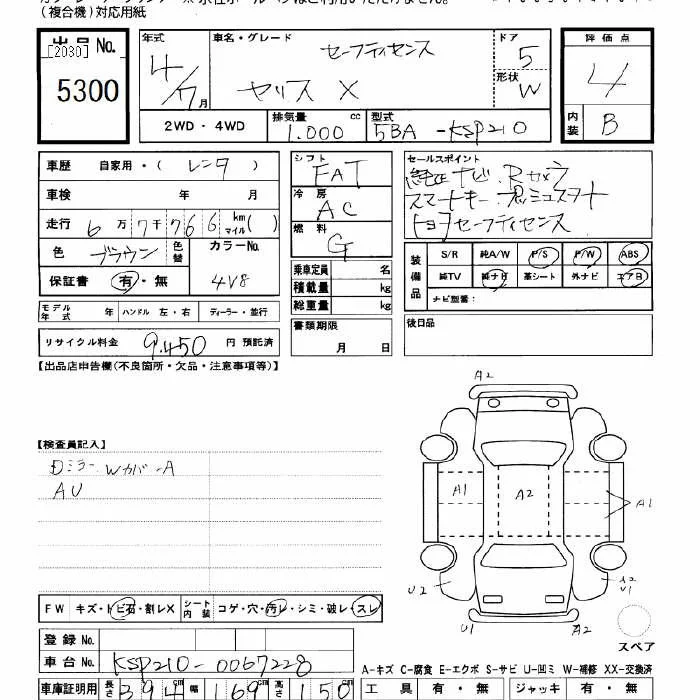 (複合機)対応用紙
出品No.
[2030]
5300
年式
4/7月
車名・グレード
セーフティセンス
ヤリス X
ドア
5
形状
W
評価点
4
内装
B
2WD・4WD
排気量 cc
1.000
型式
5BA -KSP210
車歴 自家用・( レンタ )
車検 年 月
走行 6万7千766 km マイル( )
色 ブラウン 色替
カラーNo.
4V8
保証書 有・無
モデル年式 年 ハンドル 左・右 ディーラー・並行
リサイクル料金 9.450 円 預託済
シフト
FAT
冷房
AC
燃料
G
乗車定員 名
積載量 kg
総重量 kg
書類期限
月 日
セールスポイント
純正ナビ Rカメラ
スマートキー プッシュスタート
トヨタセーフティセンス
装備品
S/R 純A/W P/S P/W ABS
純TV 純ナビ 革シート 外ナビ エアB
ナビ型番:
後日品
【出品店申告欄(不良箇所・欠品・注意事項等)】
【検査員記入】
Dミラー WカバーA
AU
A2
A1
A2
A1
U2
A2
U1
U1
A2
スペア
FW キズ・トビ石・割レX シート内装 コゲ・穴・汚レ・シミ・破レ・スレ
登録No.
車台No. KSP210-0067228
A-キズ C-腐食 E-エクボ S-サビ U-凹ミ W-補修 XX-交換済
車庫証明用 長さ 394cm 幅 169cm 高さ 150
工具 有・無 ジャッキ 有・無